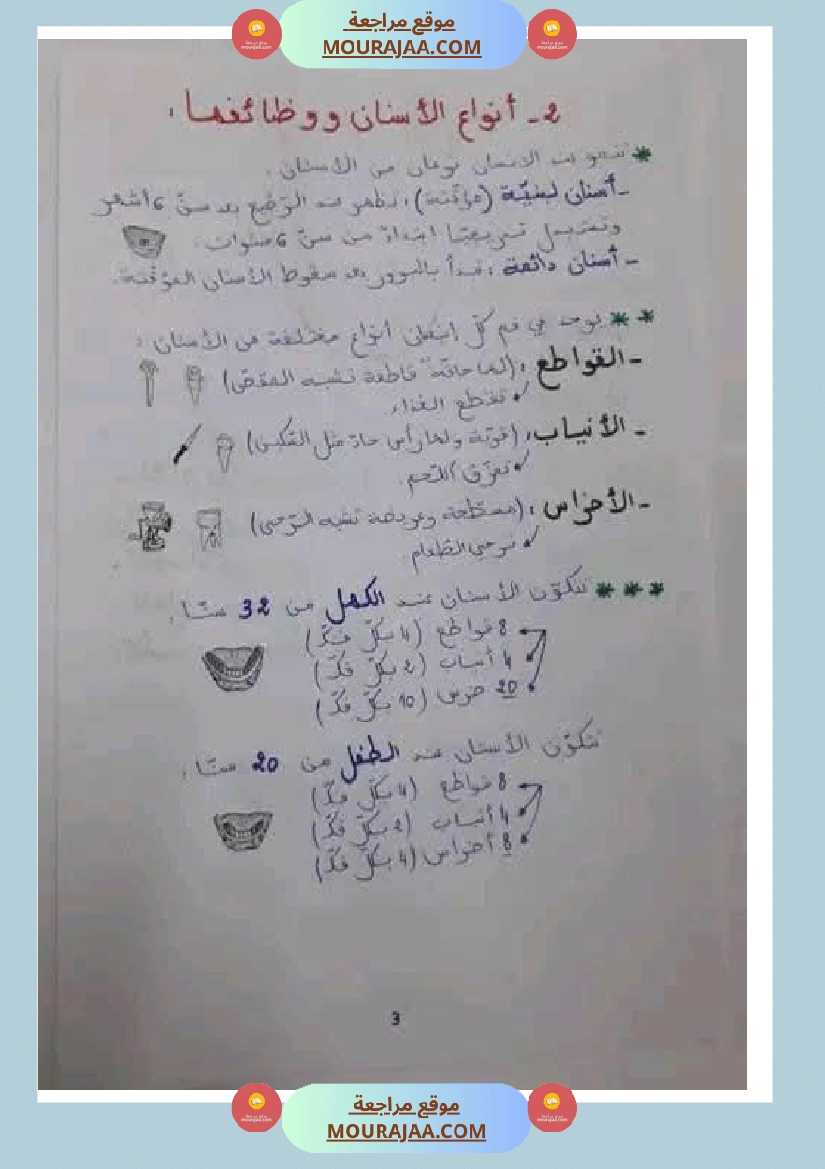 موقع مراجعة
MOURAJAA.COM
2- أنواع الأسنان ووظائفها :
* تنمو عند الإنسان نوعان من الأسنان :
- أسنان لبنيّة (مؤقّتة) : تظهر عند الرّضيع بعد سنّ 6 أشهر
ابتداءً من سنّ 6 سنوات .
- أسنان دائمة : تبدأ بالبروز بعد سقوط الأسنان المؤقّتة .
** يوجد في فم كلّ إنسان أنواع مختلفة من الأسنان :
- القواطع : (لها حافّة قاطعة تشبه المقصّ)
تقطع الغذاء
- الأنياب : (قويّة ولها رأس حادّ مثل السّكين)
تمزّق اللّحم
- الأضراس : (مسطّحة وعريضة تشبه الرّحى)
ترحي الطّعام
*** تتكوّن الأسنان عند الكهل من 32 سنّا :
8 قواطع (4 بكلّ فكّ)
4 أنياب (2 بكلّ فكّ)
20 ضرس (10 بكلّ فكّ)
تتكوّن الأسنان عند الطفل من 20 سنّا :
8 قواطع (4 بكلّ فكّ)
4 أنياب (2 بكلّ فكّ)
8 أضراس (4 بكلّ فكّ)
3
موقع مراجعة
MOURAJAA.COM